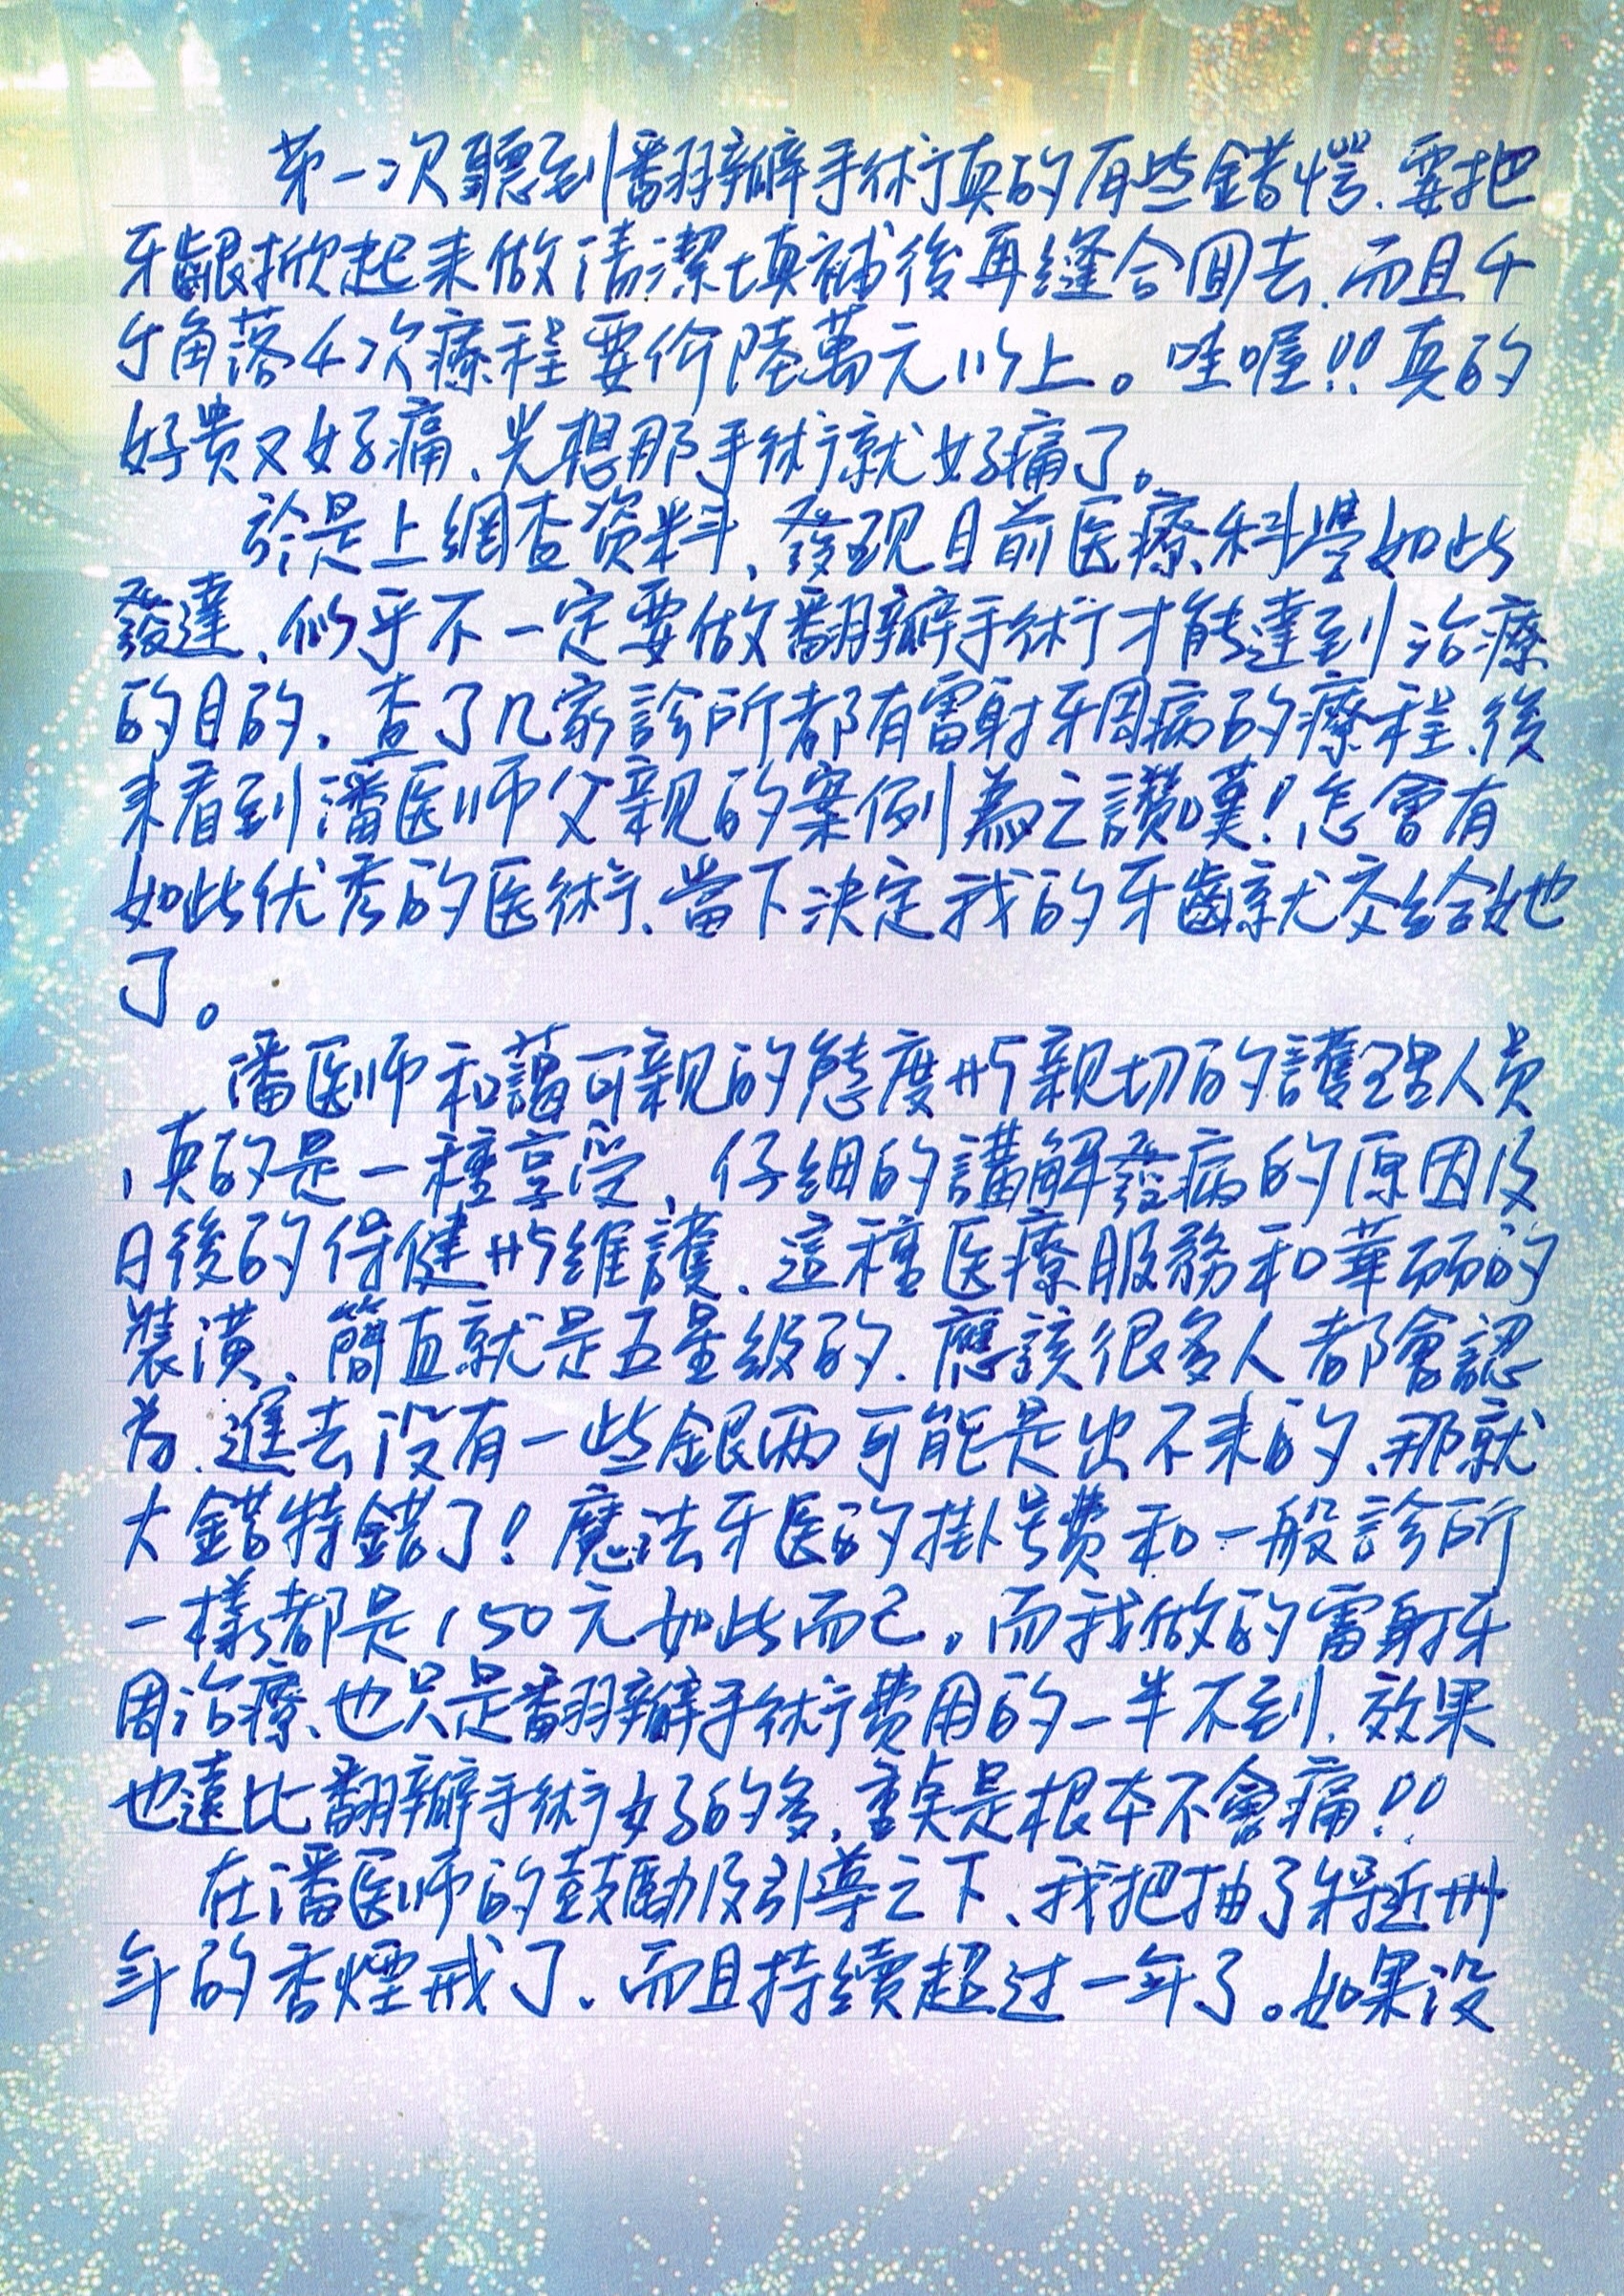 第一次聽到翻瓣手術真的有些錯愕、要把
牙齦掀起來做清潔填補後再縫合回去、而且4
个角落4次療程要价陸萬元以上。哇喔!!真的
好贵又好痛、光想那手術就好痛了。
於是上網查資料、發现目前医療科學如此
發達、似乎不一定要做翻瓣手術才能達到治療
的目的。查了几家診所都有雷射牙周病的療程、後
来看到潘医师父親的案例為之讚嘆!怎會有
如此优秀的医術、當下決定我的牙齒就交給她
了。
潘医师和藹可親的態度與親切的護理人员
,真的是一種享受、仔細的講解發病的原因及
日後的保健與維護、這種医療服務和華麗的
裝潢、簡直就是五星級的、應該很多人都會認
为、進去沒有一些銀兩可能是出不来的、那就
大錯特錯了!魔法牙医的掛号費和一般診所
一樣都是150元如此而已。而我做的雷射牙
周治療、也只是翻瓣手術費用的一半不到、效果
也遠比翻瓣手術好的多,重奌是根本不會痛!!
在潘医师的鼓勵及引導之下、我把抽了將近卅
年的香煙戒了、而且持續超过一年了。如果沒